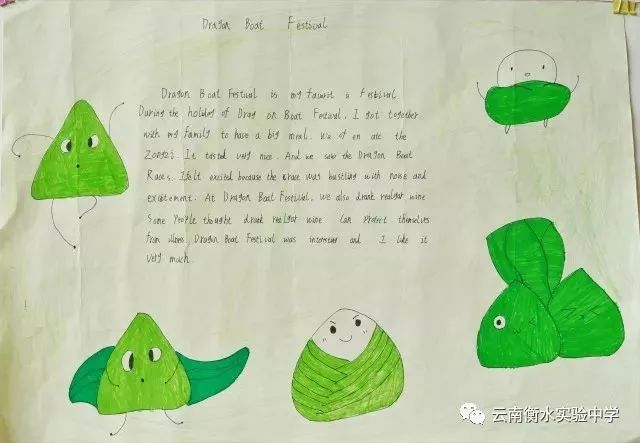 Dragon Boat Festival
Dragon Boat Festival is my fawrit a Festival
During the holiday of Drag on Boat Festival, I got together
with my family to have a big meal. We of en ate the
Zongzi. It tasted very nice. And we saw the Dragon Boat
Races. I felt excited because the race was bustling with noise and
excitement. At Dragon Boat Festival, we also drank realgar wine
Some people thought drank realgar wine can protect themselves
from illness. Dragon Boat Festival was and I like it
very much.
云南衡水实验中学